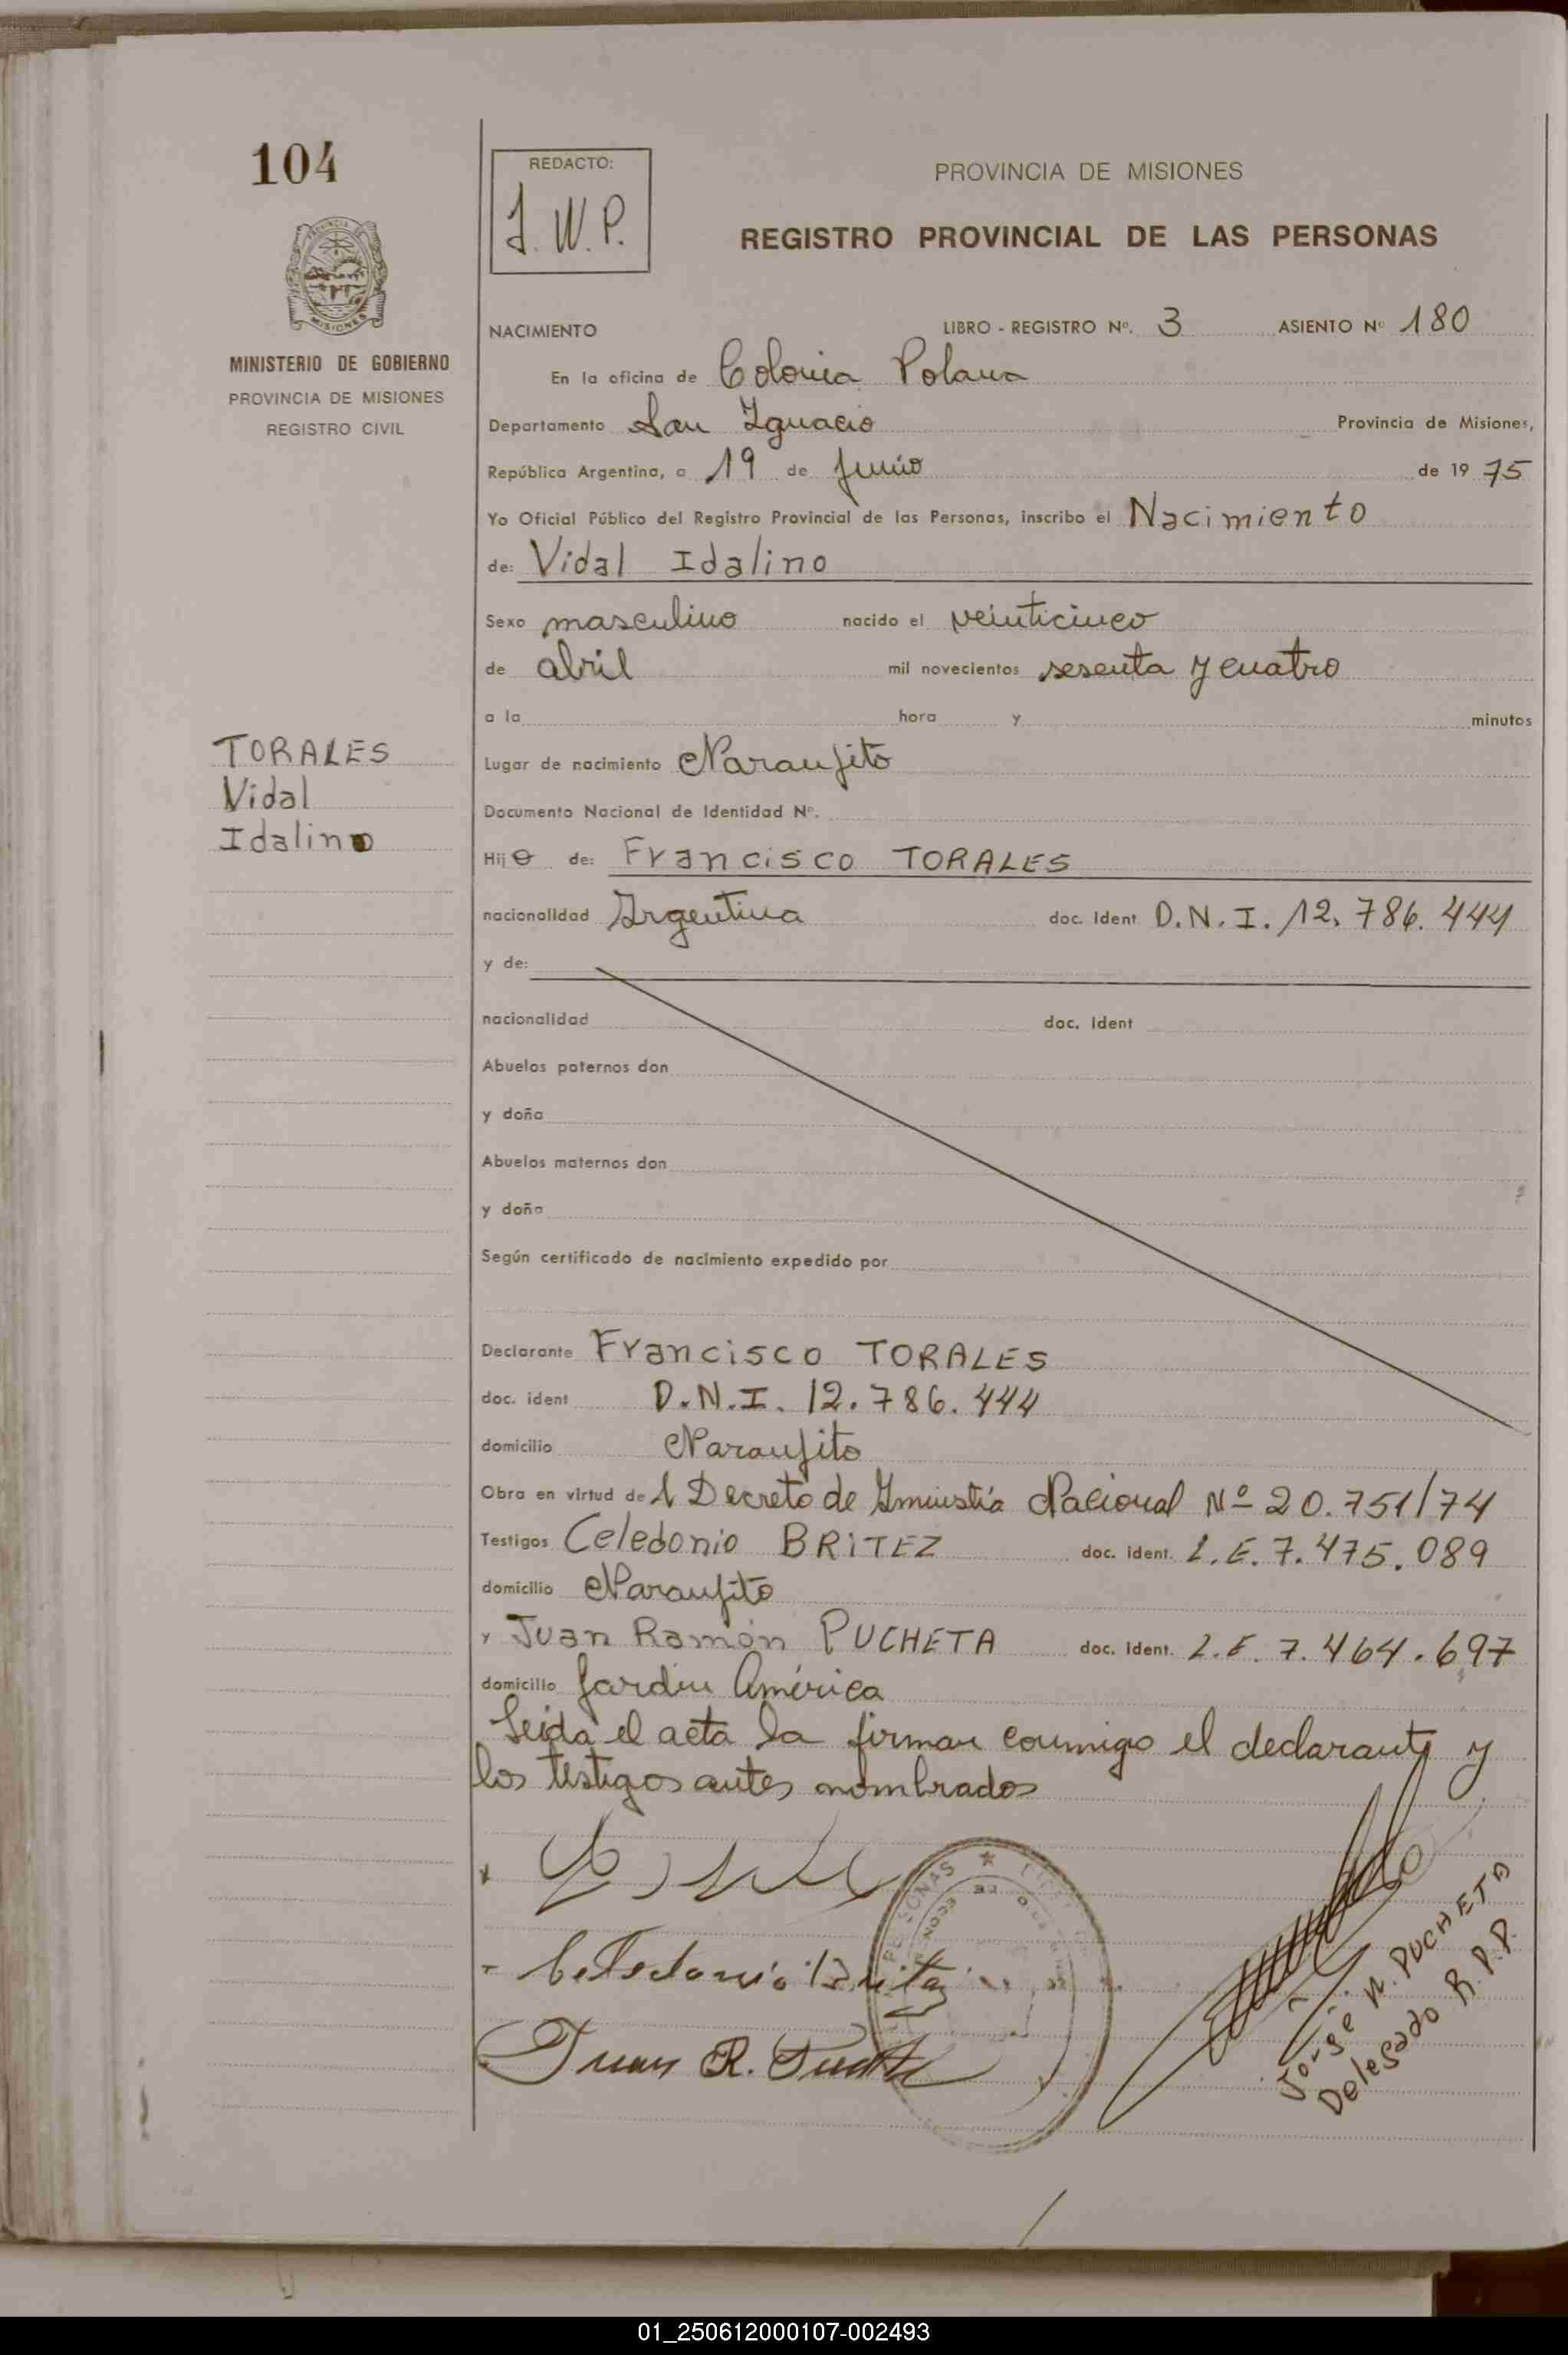 104
REDACTO:
J. W. P.
PROVINCIA DE MISIONES
REGISTRO PROVINCIAL DE LAS PERSONAS
MISIONES
MINISTERIO DE GOBIERNO
PROVINCIA DE MISIONES
REGISTRO CIVIL
NACIMIENTO LIBRO - REGISTRO Nº. 3 ASIENTO Nº 180
En la oficina de Colonia Polana
Departamento San Ignacio Provincia de Misiones,
República Argentina, a 19 de Junio de 1975
Yo Oficial Público del Registro Provincial de las Personas, inscribo el Nacimiento
de: Vidal Idalino
Sexo masculino nacido el veinticinco
de abril mil novecientos sesenta y cuatro
a la hora y minutos
TORALES
Vidal
Idalino
Lugar de nacimiento Naranjito
Documento Nacional de Identidad Nº.
Hijo de: Francisco TORALES
nacionalidad Argentina doc. Ident D.N.I. 12.786.444
y de:
nacionalidad doc. Ident
Abuelos paternos don
y doña
Abuelos maternos don
y doña
Según certificado de nacimiento expedido por
Declarante Francisco TORALES
doc. ident D.N.I. 12.786.444
domicilio Naranjito
Obra en virtud del Decreto de Amnistía Nacional Nº 20.751/74
Testigos Celedonio BRITEZ doc. ident. L.E. 7.475.089
domicilio Naranjito
y Juan Ramón PUCHETA doc. Ident. L.E. 7.464.697
domicilio Jardin América
Leida el acta la firman conmigo el declarante y
los testigos antes nombrados
Celedonio Britez
Juan R. Pucheta
Jorge W. PUCHETA
Delegado R.P.P.
01_250612000107-002493